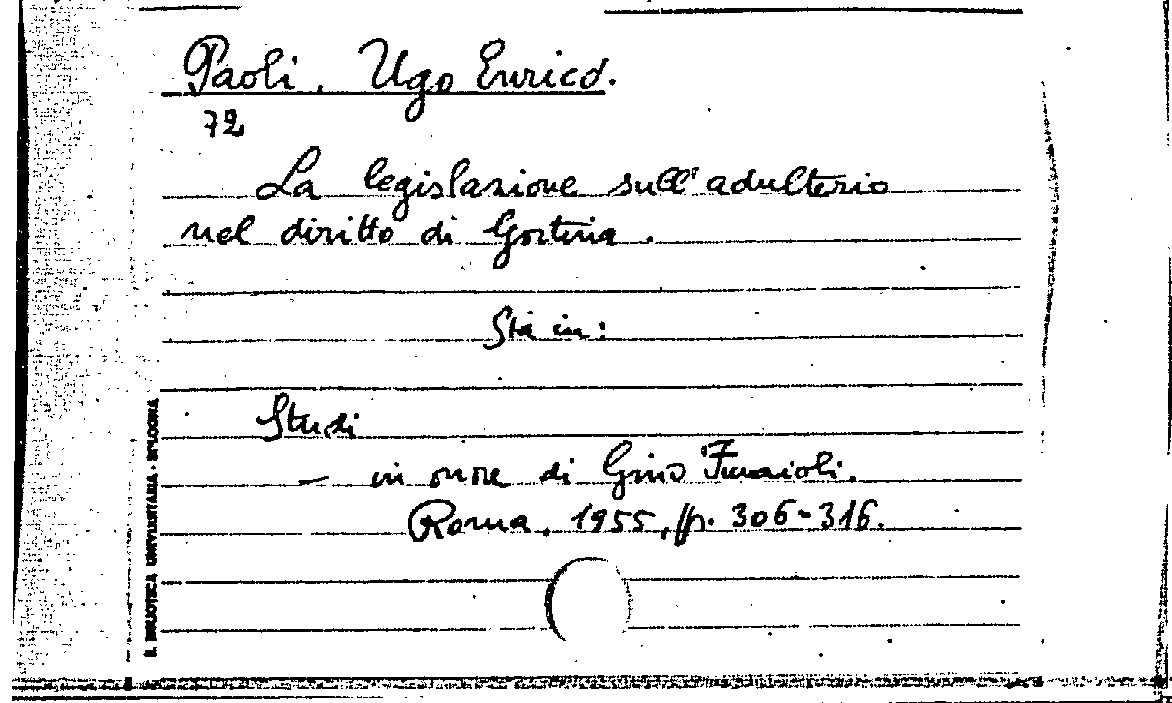 Paoli, Ugo Enrico.
72
La legislazione sull'adulterio
nel diritto di Gortina.
Sta in:
Studi
— in onore di Gino Funaioli.
Roma, 1955, pp. 306-316.
R. BIBLIOTECA UNIVERSITARIA - BOLOGNA